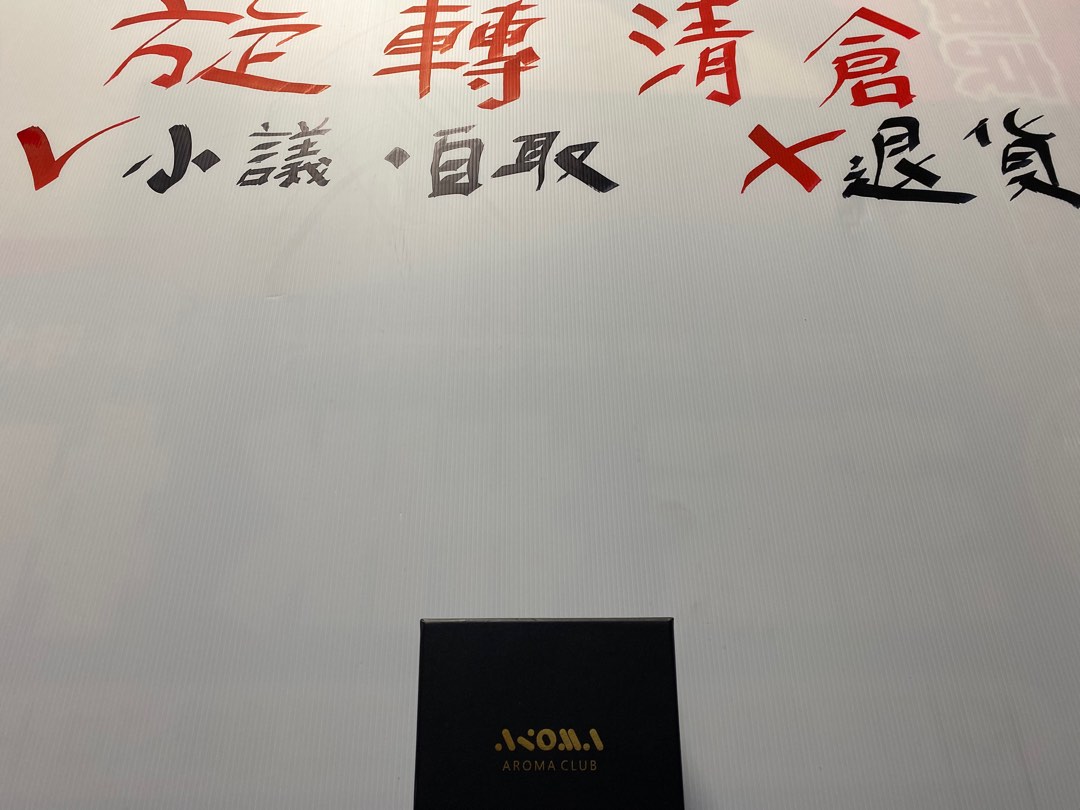 旋轉清倉
✓小議·自取 ✗退貨
AROMA
AROMA CLUB